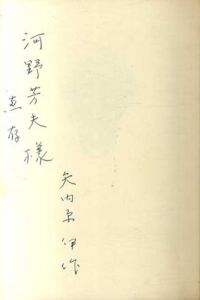 河野芳夫様
恵存
矢内原伊作